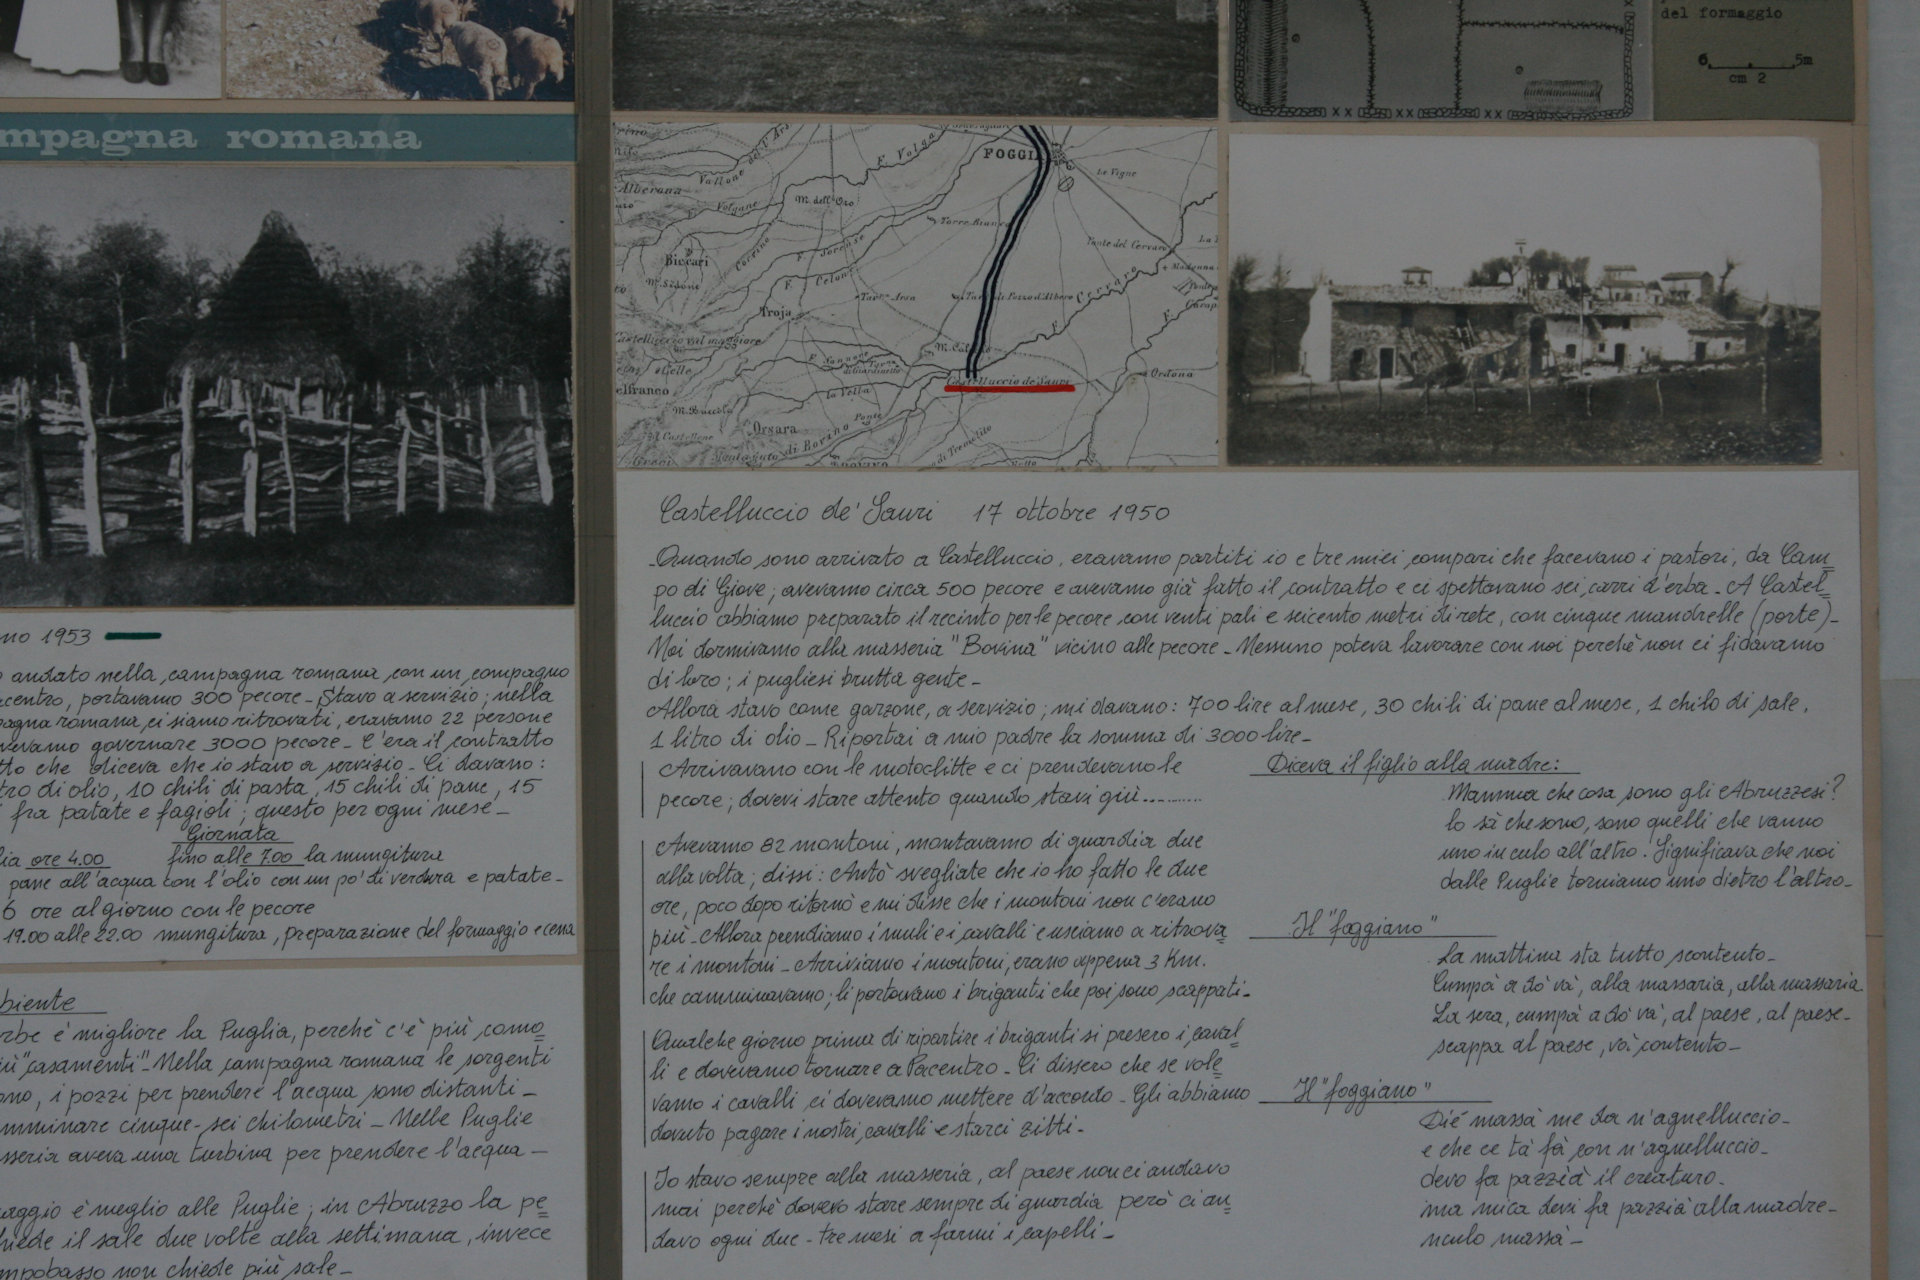 del formaggio
6 5m
cm 2
mpagna romana
FOGGIA
F. Volga
Le Vigne
Alberona
Vallone
Volgano
M. dell'Oro
Biccari
F. Celone
Ponte del Cervaro
F. Cervaro
Troja
Castelluccio val maggiore
Celle
Ordona
la Vella
Castelluccio de' Sauri
Orsara
di Bovino
Ponte
no 1953
andato nella campagna romana con un compagno
acentro, portavamo 300 pecore - Stavo a servizio; nella
pagna romana ci siamo ritrovati, eravamo 22 persone
vevamo governare 3000 pecore - C'era il contratto
tto che diceva che io stavo a servizio - Ci davano:
tro di olio, 10 chili di pasta, 15 chili di pane, 15
fra patate e fagioli; questo per ogni mese -
Giornata
lia ore 4.00 fino alle 7.00 la mungitura
pane all'acqua con l'olio con un po' di verdura e patate -
6 ore al giorno con le pecore
19.00 alle 22.00 mungitura, preparazione del formaggio e cena
biente
rbe é migliore la Puglia, perchè c'è più como
iù "casamenti" - Nella campagna romana le sorgenti
ono, i pozzi per prendere l'acqua sono distanti -
mminare cinque - sei chilometri - Nelle Puglie
sseria aveva una turbina per prendere l'acqua -
aggio è meglio alle Puglie; in Abruzzo la pe
hiede il sale due volte alla settimana, invece
mpobasso non chiede più sale -
Castelluccio de' Sauri 17 ottobre 1950
Quando sono arrivato a Castelluccio, eravamo partiti io e tre miei compari che facevano i pastori, da Cam
po di Giove; avevamo circa 500 pecore e avevamo già fatto il contratto e ci spettavano sei carri d'erba - A Castel
luccio abbiamo preparato il recinto per le pecore con venti pali e seicento metri di rete, con cinque mandrelle (porte) -
Noi dormivamo alla masseria "Bovina" vicino alle pecore - Nessuno poteva lavorare con noi perchè non ci fidavamo
di loro; i pugliesi brutta gente -
Allora stavo come garzone, a servizio; mi davano: 700 lire al mese, 30 chili di pane al mese, 1 chilo di sale,
1 litro di olio - Riportai a mio padre la somma di 3000 lire -
Arrivavano con le motoclitte e ci prendevano le
pecore; dovevi stare attento quando stavi giù..........
Avevamo 82 montoni, montavamo di guardia due
alla volta; dissi: Antò svegliate che io ho fatto le due
ore, poco dopo ritornò e mi disse che i montoni non c'erano
più - Allora prendiamo i muli e i cavalli e usciamo a ritrova
re i montoni - Arriviamo i montoni, erano appena 3 Km.
che camminavamo; li portavano i briganti che poi sono scappati -
Qualche giorno prima di ripartire i briganti si presero i caval
li e dovevamo tornare a Pacentro - Ci dissero che se vole
vamo i cavalli ci dovevamo mettere d'accordo - Gli abbiamo
dovuto pagare i nostri cavalli e starci zitti -
Io stavo sempre alla masseria, al paese non ci andavo
mai perchè dovevo stare sempre di guardia però ci an
davo ogni due - tre mesi a farmi i capelli -
Diceva il figlio alla madre:
Mamma che cosa sono gli Abruzzesi?
lo sà che sono, sono quelli che vanno
uno in culo all'altro. Significava che noi
dalle Puglie torniamo uno dietro l'altro -
Il "foggiano"
La mattina sta tutto scontento -
Cumpà a dò và, alla massaria, alla massaria
La sera, cumpà a dò và, al paese, al paese -
scappa al paese, và contento -
Il "foggiano"
Diè massà me da n'agnelluccio -
e che ce tà fà con n'agnelluccio -
devo fa pazzià il creaturo -
ma mica devi fa pazzià alla madre -
nculo massà -